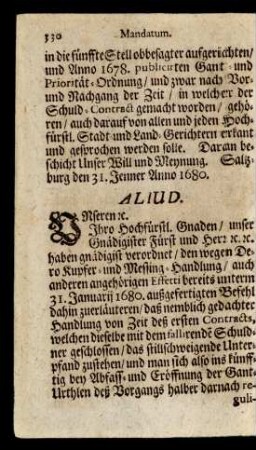 330 Mandatum.
in die fünffte Stell obbesagter aufgerichten/
und Anno 1678. publicirten Gant- und
Priorität-Ordnung/ und zwar nach Vor-
und Nachgang der Zeit/ in welcher der
Schuld-Contract gemacht worden/ gehö-
ren/ auch darauf von allen und jeden Hoch-
fürstl. Stadt- und Land-Gerichtern erkant
und gesprochen werden solle. Daran be-
schicht Unser Will und Meynung. Saltz-
burg den 31. Jenner Anno 1680.
ALIUD.
UNseren ꝛc.
Ihro Hochfürstl. Gnaden/ unser
Gnädigster Fürst und Herꝛ ꝛc. ꝛc.
haben gnädigist verordnet/ den wegen De-
ro Kupfer- und Messing-Handlung/ auch
anderen angehörigen Effecti bereits unterm
31. Januarij 1680. außgefertigten Befehl
dahin zuerläuteren/ daß nemblich gedachter
Handlung von Zeit deß ersten Contracts,
welchen dieselbe mit dem fallirendē Schuld-
ner geschlossen/ das stillschweigende Unter-
pfand zustehen/ und man sich also ins künff-
tig bey Abfass- und Eröffnung der Gant-
Urthlen deß Vorgangs halber darnach re-
guli-